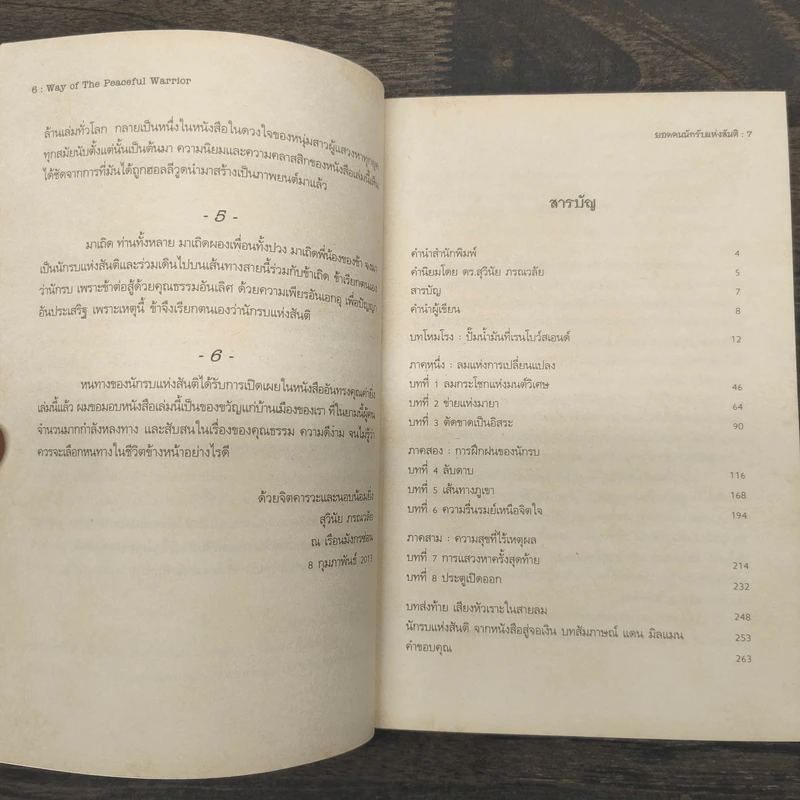 6 : Way of The Peaceful Warrior
ล้านเล่มทั่วโลก กลายเป็นหนึ่งในหนังสือในดวงใจของหนุ่มสาวผู้แสวงหาทุกยุค
ทุกสมัยนับตั้งแต่นั้นเป็นต้นมา ความนิยมและความคลาสสิกของหนังสือเล่มนี้
ได้ชัดจากการที่มันได้ถูกฮอลลีวูดนำมาสร้างเป็นภาพยนต์มาแล้ว
- 5 -
มาเถิด ท่านทั้งหลาย มาเถิดผองเพื่อนทั้งปวง มาเถิดพี่น้องของข้า จงมา
เป็นนักรบแห่งสันติและร่วมเดินไปบนเส้นทางสายนี้ร่วมกับข้าเถิด ข้าเรียกตนเอง
ว่านักรบ เพราะข้าต่อสู้ด้วยคุณธรรมอันเลิศ ด้วยความเพียรอันเอกอุ เพื่อปัญญา
อันประเสริฐ เพราะเหตุนี้ ข้าจึงเรียกตนเองว่านักรบแห่งสันติ
- 6 -
หนทางของนักรบแห่งสันติได้รับการเปิดเผยในหนังสืออันทรงคุณค่ายิ่ง
เล่มนี้แล้ว ผมขอมอบหนังสือเล่มนี้เป็นของขวัญแก่บ้านเมืองของเรา ที่ในยามนี้ผู้คน
จำนวนมากกำลังหลงทาง และสับสนในเรื่องของคุณธรรม ความดีงาม จนไม่รู้ว่า
ควรจะเลือกหนทางในชีวิตข้างหน้าอย่างไรดี
ด้วยจิตคารวะและนอบน้อมยิ่ง
สุวินัย ภรณวลัย
ณ เรือนมังกรซ่อน
8 กุมภาพันธ์ 2013
ยอดคนนักรบแห่งสันติ : 7
สารบัญ
คำนำสำนักพิมพ์ 4
คำนิยมโดย ดร.สุวินัย ภรณวลัย 5
สารบัญ 7
คำนำผู้เขียน 8
บทโหมโรง : ปั๊มน้ำมันที่เรนโบว์สเอนด์ 12
ภาคหนึ่ง : ลมแห่งการเปลี่ยนแปลง
บทที่ 1 ลมกระโชกแห่งมนต์วิเศษ 46
บทที่ 2 ข่ายแห่งมายา 64
บทที่ 3 ตัดขาดเป็นอิสระ 90
ภาคสอง : การฝึกฝนของนักรบ
บทที่ 4 ลับดาบ 116
บทที่ 5 เส้นทางภูเขา 168
บทที่ 6 ความรื่นรมย์เหนือจิตใจ 194
ภาคสาม : ความสุขที่ไร้เหตุผล
บทที่ 7 การแสวงหาครั้งสุดท้าย 214
บทที่ 8 ประตูเปิดออก 232
บทส่งท้าย เสียงหัวเราะในสายลม 248
นักรบแห่งสันติ จากหนังสือสู่จอเงิน บทสัมภาษณ์ แดน มิลแมน 253
คำขอบคุณ 263